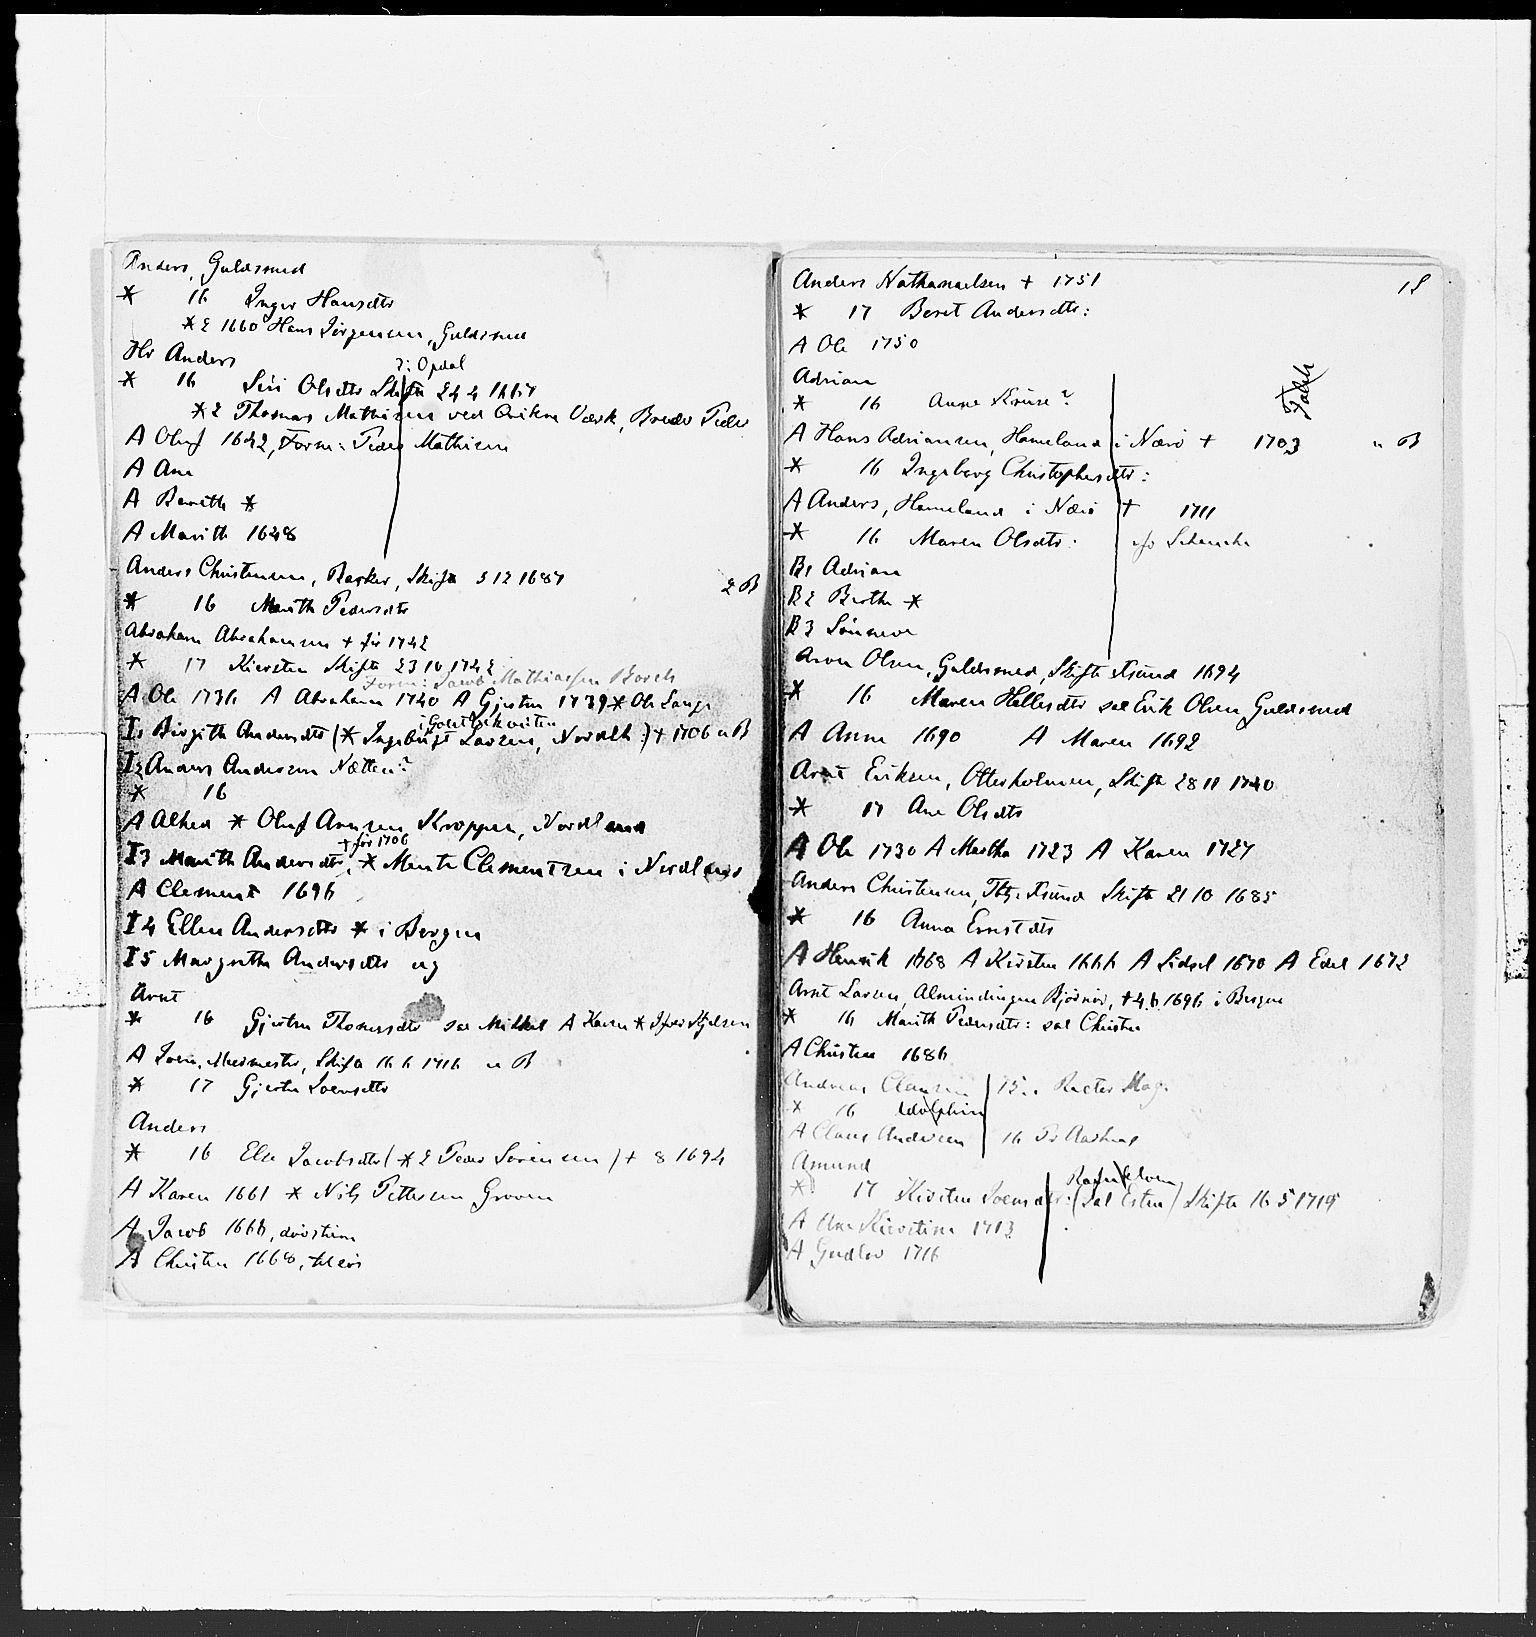 Anders, Guldsmed
* 16 Inger Hansdtr
* 2 1660 Hans Jørgensen, Guldsmed
Hr Anders
?: Opdal
* 16 Siri Olsdtr Skifte 24 4 1667
* 2 Thomas Mathisen ved Qvikne Værk, Broder Peder
A Oluf 1642, Form: Peder Mathisen
A Ane
A Berith *
A Marith 1648
Anders Christensen, Barker, Skifte 3 12 1687 2 B
* 16 Marith Pedersdtr
Abraham Abrahamsen + før 1742
* 17 Kiersten Skifte 23 10 1742
Form: Jacob Mathiassen Borch
A Ole 1736 A Abraham 1740 A Gjertru 1739 * Ole Lange
I1 Birgith Andersdtr (* Ingebrigt Larsen, Nordlh:) + 1706 u B
I2 Anders Andersen Nætten?
* 16
A Alhed * Oluf Arnsen Kroppen, Nordland
+ før 1706
I3 Marith Andersdtr, * Mentz Clementsen i Nordland
A Clement 1696
I4 Ellen Andersdtr * i Bergen
I5 Margrethe Andersdtr ug
Arnt
* 16 Gjertru Thomesdtr sal Mikkel A Karen * Iver Kjelsen
A Joen, Murmester, Skifte 16 6 1716 u B
* 17 Gjertru Joensdtr
Anders
* 16 Else Jacobsdtr (* 2 Peder Sørensen) + 8 1694
A Karen 1661 * Nils Pettersen Grooven
A Jacob 1666, døvstum
A Christen 1668, tileirs
18
Anders Nathanaelsen + 1751
* 17 Beret Andersdtr:
A Ole 1750
Adrian
Falsk
* 16 Anne Kruse?
A Hans Adriansen, Hameland i Nærø + 1703 u B
* 16 Ingeborg Christophersdtr:
A Anders, Hameland i Nærø + 1711
* 16 Maren Olsdtr: efr Schancke
B1 Adrian
B2 Berthe *
B3 Sinneve
Arve Olsen, Guldsmed, Skifte Ksund 1694
* 16 Maren Hellesdtr sal Erik Olsen Guldsmed
A Anne 1690 A Maren 1692
Arnt Eriksen, Otterholmen, Skifte 28 11 1740
* 17 Ane Olsdtr
A Ole 1730 A Martha 1723 A Karen 1727
Anders Christensen, Ksund Skifte 21 10 1685
* 16 Anna Ernstdtr
A Henrik 1668 A Kirsten 1666 A Sidsel 1670 A Edel 1672
Arnt Larsen, Almindingen Bjørnør, + 4.6 1696 i Bergen
* 16 Marith Pedersdtr: sal Christen
A Christen 1686
Andreas Clausen 15.. Rector Mag.
* 16 Adolphin
A Claus Andersen 16 Pr Aarhus
Amund
* 17 Kirsten Joensdtr: (sal Esten) Skifte 16 5 1719
A Ane Kierstine 1713
A Gudlov 1716